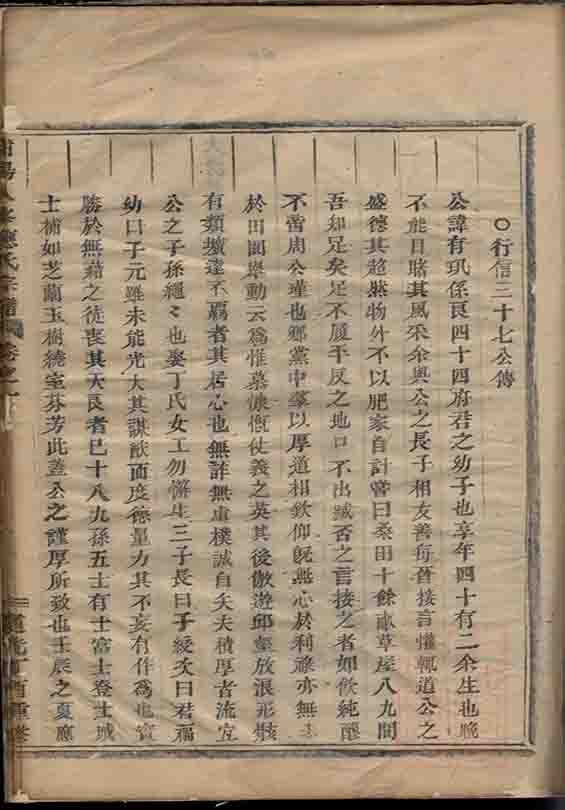 ○行信三十七公傳
公諱有玑係良四十四府君之幼子也享年四十有二余生也晚
不能目睹其風采余與公之長子相友善每晉接言懽輒道公之
盛德其超然物外不以肥家自計嘗曰桑田十餘畝草屋八九間
吾知足矣足不履平反之地口不出臧否之言接之者如飲純醪
不啻周公瑾也鄉黨中羣以厚道相欽仰旣無心於利祿亦無
於田園舉動云爲惟慕慷慨仗義之英其後傲遊邱壑放浪形骸
有類曠達不羈者其居心也無詐無虞樸誠自矢夫積厚者流宜
公之子孫繩々也娶丁氏女工勿懈生三子長曰子綬次曰君福
幼曰子元雖未能光大其謀猷而度德量力其不妄有作爲也實
勝於無藉之徒喪其天良者巳十八九孫五士有士富士登士城
士補如芝蘭玉樹繞室芬芳此蓋公之謹厚所致也壬辰之夏應
陽 應氏宗譜 卷之
道光丁酉重修